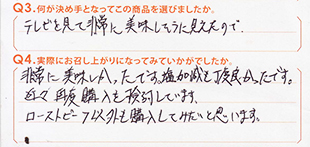 Q3.何が決め手となってこの商品を選びましたか。
テレビを見て非常に美味しそうに見えたので.
Q4.実際にお召し上がりになってみていかがでしたか。
非常に美味しかったです。塩加減も丁度良かったです。
近々再度購入も検討しています。
ローストビーフ以外も購入してみたいと思います。